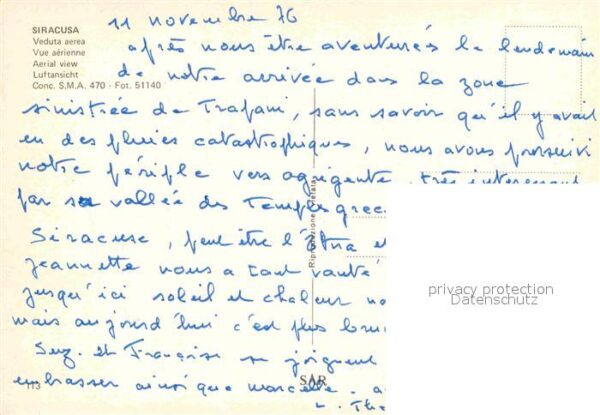 11 novembre 76
SIRACUSA
Veduta aerea
Vue aérienne
Aerial view
Luftansicht
Conc. S.M.A. 470 - Fot. 51140
après nous être aventurés le lendemain
de notre arrivée dans la zone
sinistrée de Trapani, sans savoir qu'il y avait
eu des pluies catastrophiques, nous avons poursuivi
notre périple vers agrigente, très intéressant
par sa vallée des Temples grec
Siracuse, peut être l'Etna et
jeannette nous a tant vanté
jusqu'ici soleil et chaleur no
mais aujourd'hui c'est plus brum
Suz. et Françoise se joignent
embrasser ainsi que marcelle. a
L. The
Riproduzione vietata
113
SAR
privacy protection
Datenschutz